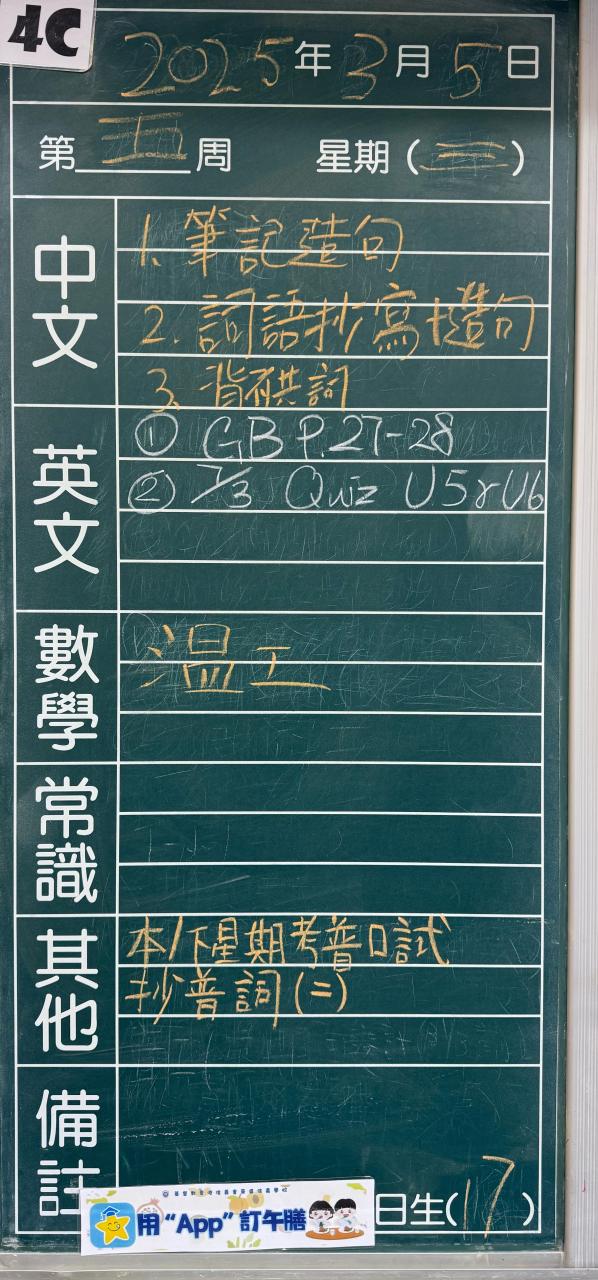 4C
2025年3月5日
第五周 星期(三)
中文
1. 筆記造句
2. 詞語抄寫+造句
3. 背默詞
英文
① GB P.27-28
② 7/3 Quiz U5&U6
數學
温工
常識
其他
本/下星期考普口試
抄普詞(二)
備註
用“App”訂午膳
日生(17)